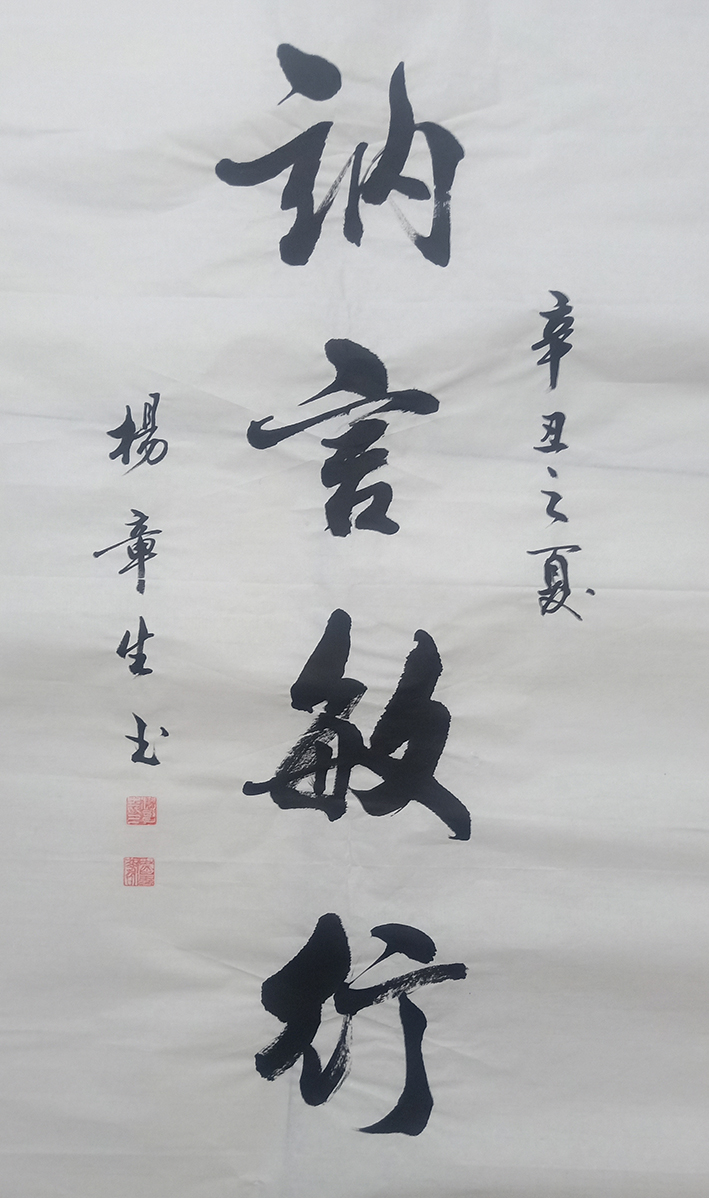 辛丑之夏
訥言敏行
楊章生书